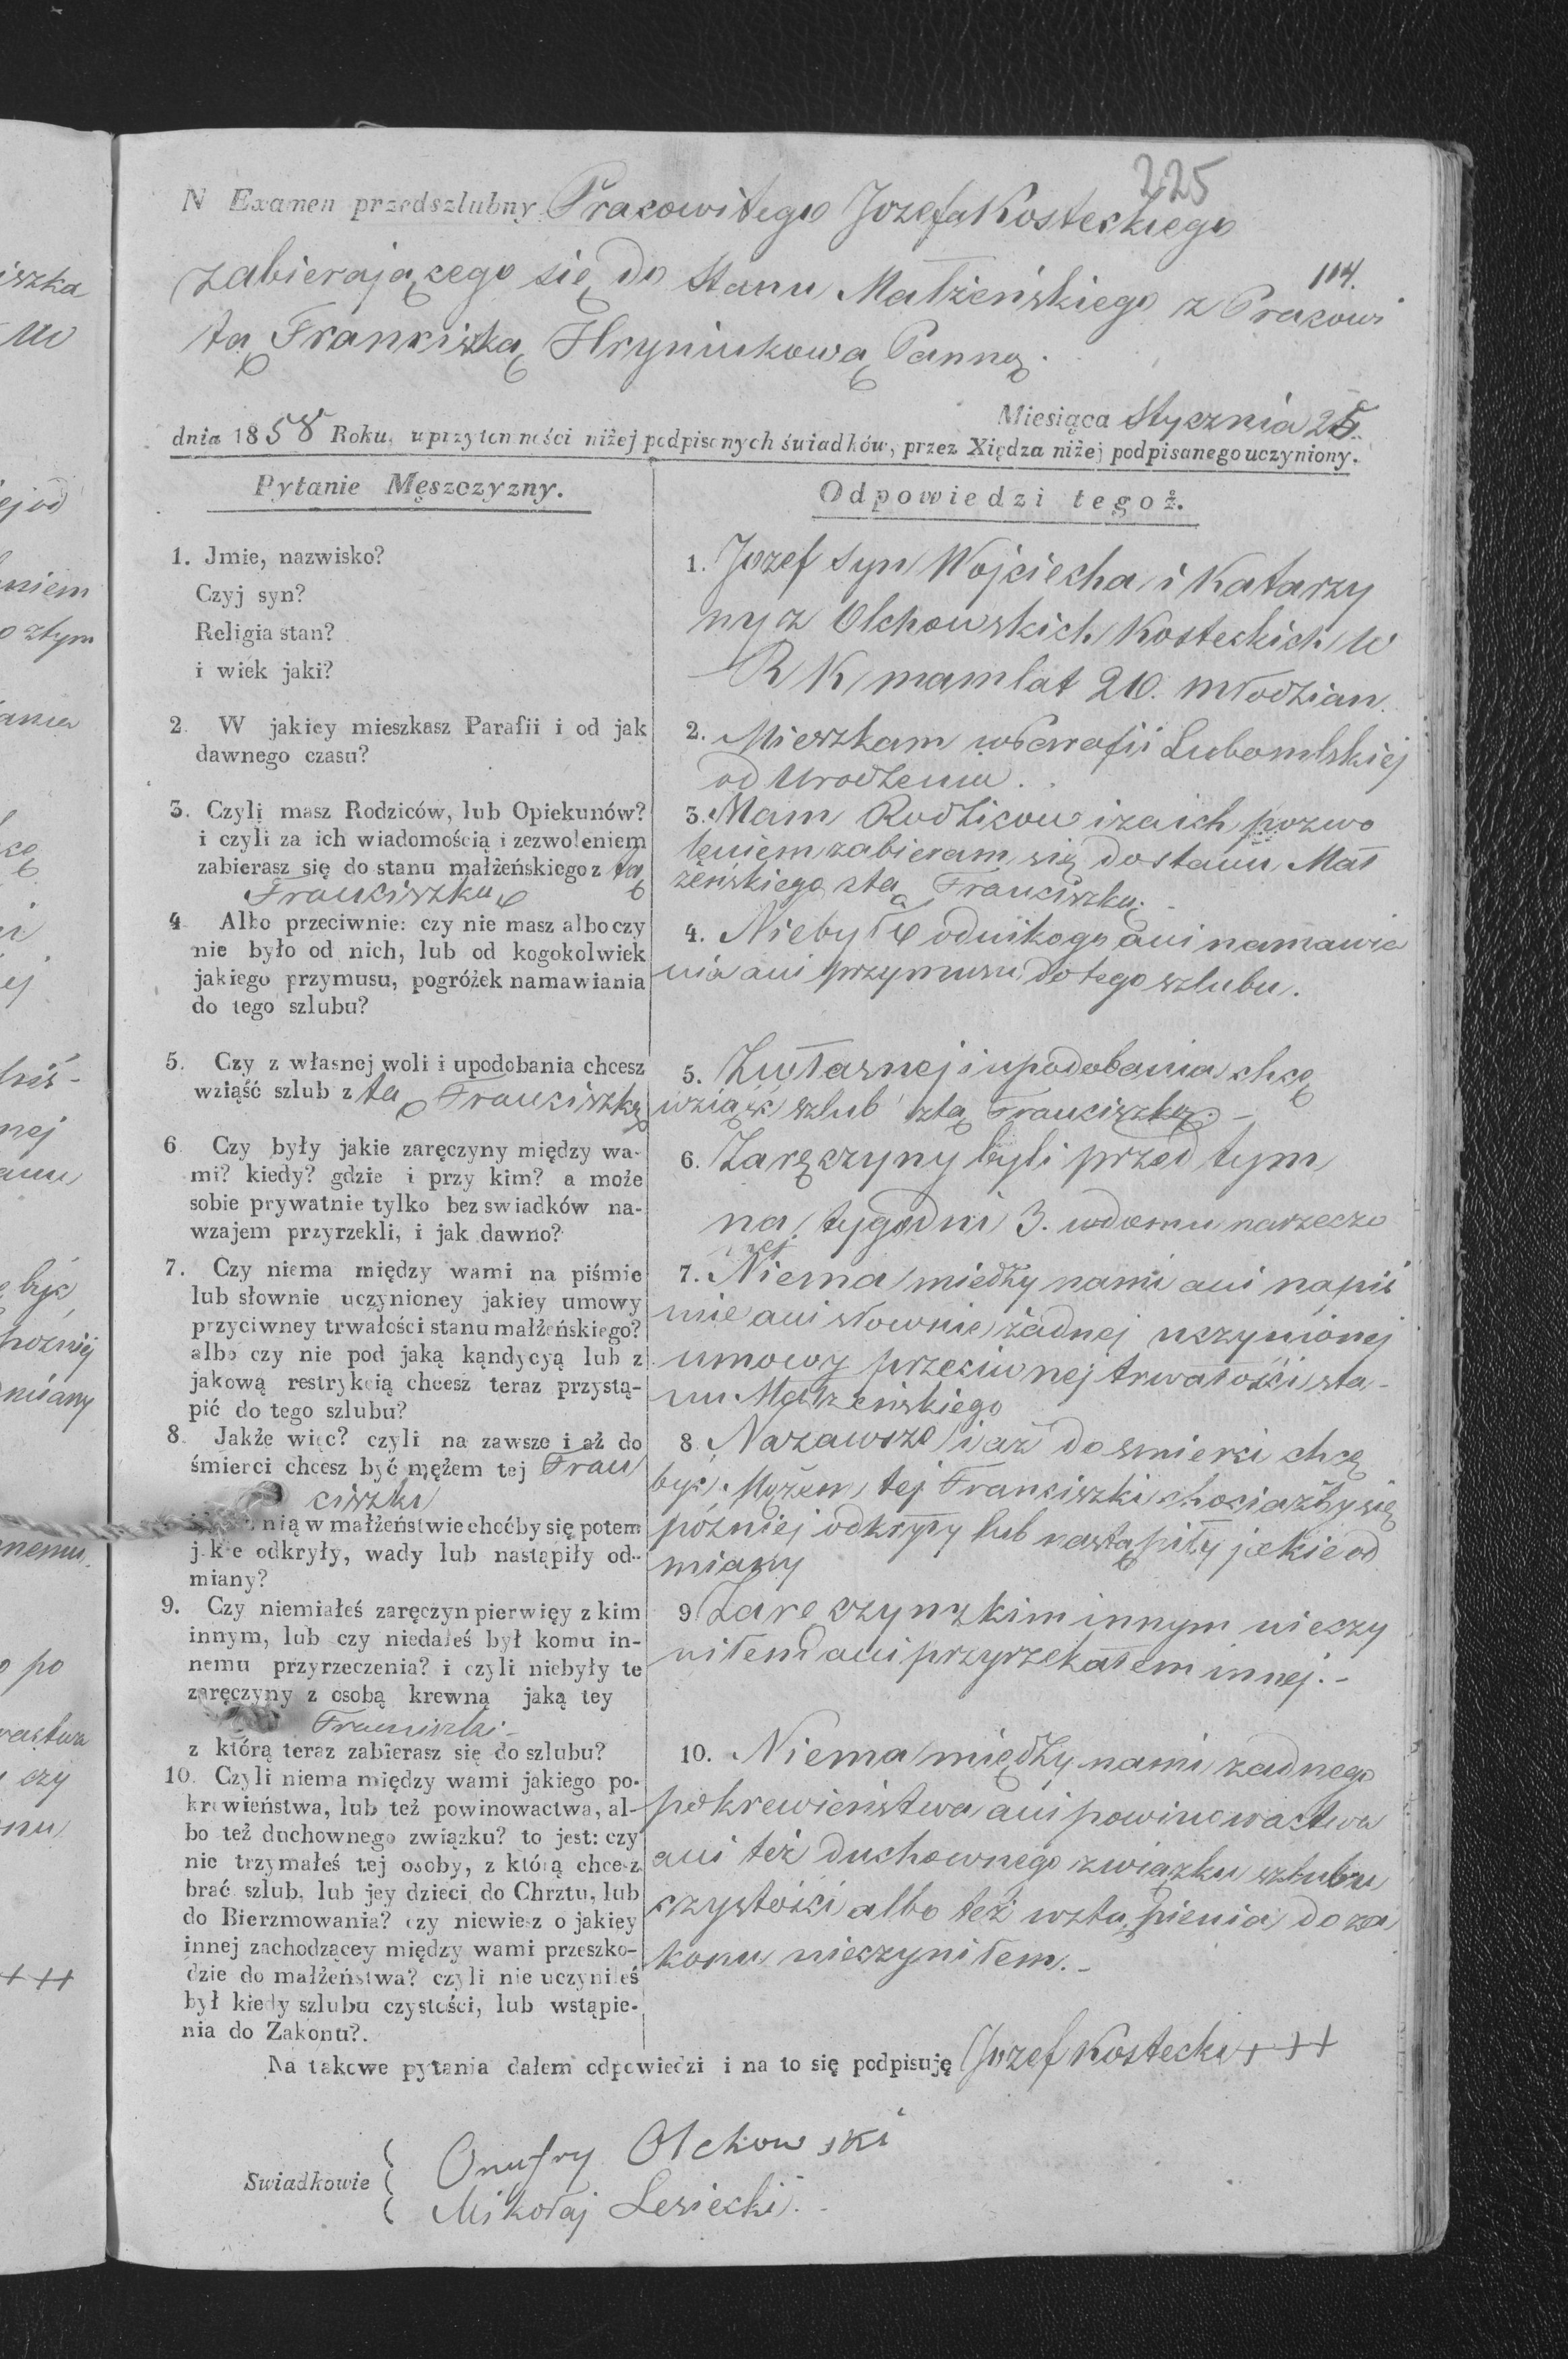 225
N Examen przedszlubny Pracowitego Jozefa Kosteckiego
114.
zabierającego się do Stanu Małżeńskiego z Pracowi
tą Franciszką Hryniukową Panną.
Miesiąca Stycznia 25.
dnia 1858 Roku, w przytomności niżej podpisanych świadków, przez Xiędza niżej podpisanego uczyniony.
Pytanie Męszczyzny.
1. Jmie, nazwisko?
Czyj syn?
Religia stan?
i wiek jaki?
2. W jakiey mieszkasz Parafii i od jak
dawnego czasu?
3. Czyli masz Rodziców, lub Opiekunów?
i czyli za ich wiadomością i zezwoleniem
zabierasz się do stanu małżeńskiego z tą
Franciszką
4. Albo przeciwnie: czy nie masz albo czy
nie było od nich, lub od kogokolwiek
jakiego przymusu, pogróżek namawiania
do tego szlubu?
5. Czy z własnej woli i upodobania chcesz
wziąść szlub z tą Franciszką
6. Czy były jakie zaręczyny między wa-
mi? kiedy? gdzie i przy kim? a może
sobie prywatnie tylko bez swiadków na-
wzajem przyrzekli, i jak dawno?
7. Czy niema między wami na piśmie
lub słownie uczynioney jakiey umowy
przyciwney trwałości stanu małżeńskiego?
albo czy nie pod jaką kądycyą lub z
jakową restrykcią chcesz teraz przystą-
pić do tego szlubu?
8. Jakże więc? czyli na zawsze i aż do
śmierci chcesz być mężem tej Fran
ciszki
nią w małżeństwie choćby się potem
jakie odkryły, wady lub nastąpiły od-
miany?
9. Czy niemiałeś zaręczyn pierwięy z kim
innym, lub czy niedałeś był komu in-
nemu przyrzeczenia? i czyli niebyły te
zaręczyny z osobą krewną jaką tey
Franciszki
z którą teraz zabierasz się do szlubu?
10. Czyli niema między wami jakiego po-
krewieństwa, lub też powinowactwa, al-
bo też duchownego związku? to jest: czy
nie trzymałeś tej osoby, z którą chcesz
brać szlub, lub jey dzieci do Chrztu, lub
do Bierzmowania? czy niewiesz o jakiey
innej zachodzącey między wami przeszko-
dzie do małżeństwa? czyli nie uczyniłeś
był kiedy szlubu czystości, lub wstąpie-
nia do Zakonu?.
Odpowiedzi tegoż.
1. Jozef syn Wojciecha i Katarzy
ny z Olchowskich Kosteckich W
R K mam lat 20. młodzian
2. Mieszkam w Parafii Lubomlskiej
od Urodzenia.
3. Mam Rodzicow i za ich pozwo
leniem zabieram się do stanu Mał
żeńskiego z tą Franciszką.
4. Niebyło od nikogo ani namawia
nia ani przymusu do tego szlubu.
5. Z własnej i upodobania chcę
wziąść szlub z tą Franciszką.-
6. Zaręczyny byli przed tym
na tygodni 3. w domu narzeczo
nej
7. Niema miedzy nami ani na piś
mie ani słownie żadnej uczynionej
umowy przeciwnej trwałości sta-
nu Małżeńskiego
8. Na zawsze i aż do smierci chcę
być Mężem tej Franciszki chociażby się
później odkryły lub nastąpiły jakie od
miany
9. Zaręczyn z kim innym nieczy
niłem ani przyrzekałem innej.-
10. Niema między nami żadnego
pokrewieństwa ani powinowactwa
ani też duchownego związku szlubu
czystości albo też wstąpienia do za
konu nieczyniłem.-
Na takowe pytania dałem odpowiedzi i na to się podpisuję Jozef Kostecki +++
Swiadkowie
Onufry Olchowski
Mikołaj Lesiecki.-